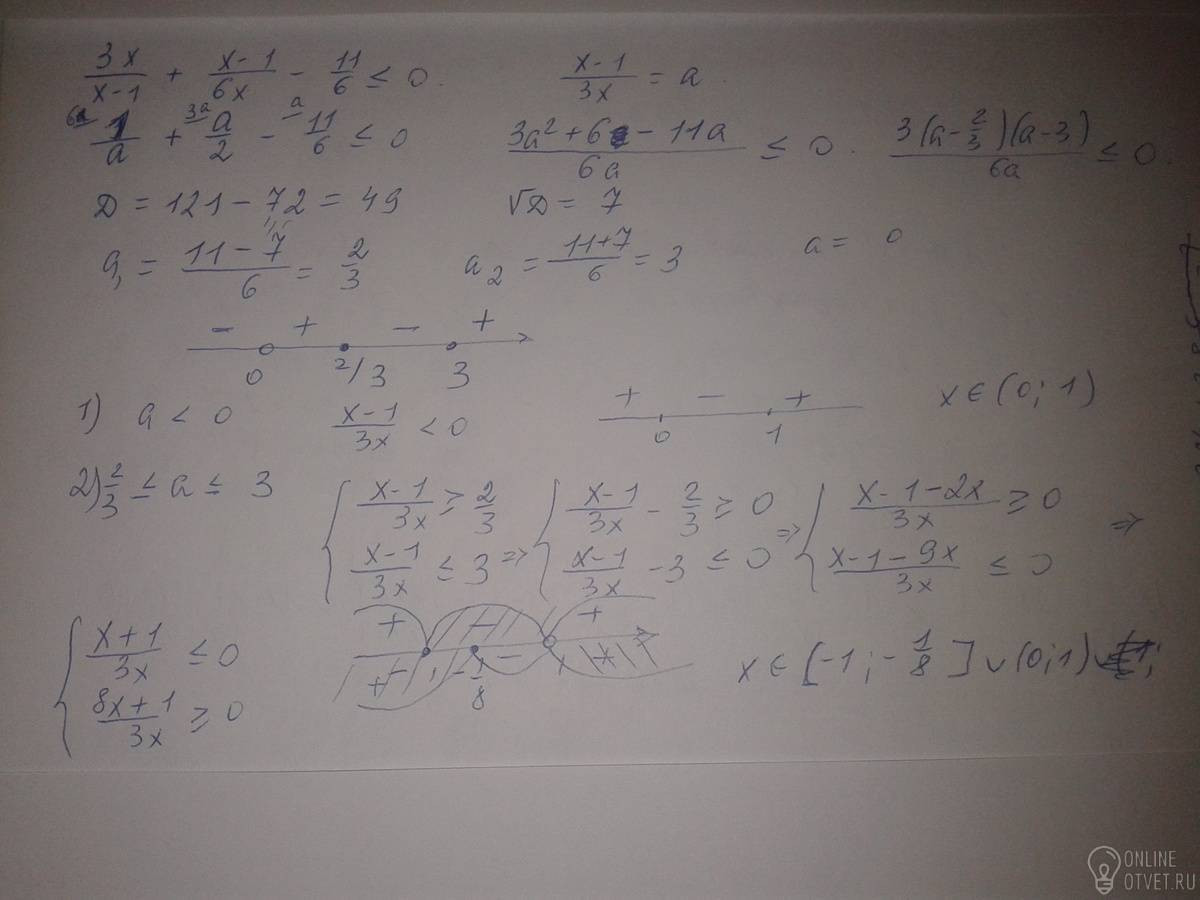 3x/(x-1) + (x-1)/(6x) - 11/6 ≤ 0. (x-1)/(3x) = a.
6a 1/a + 3a a/2 - a 11/6 ≤ 0 (3a² + 6 - 11a)/(6a) ≤ 0. 3(a - 2/3)(a-3)/(6a) ≤ 0.
D = 121 - 72 = 49 √D = 7
a₁ = (11-7)/6 = 2/3 a₂ = (11+7)/6 = 3 a = 0
- + - +
0 2/3 3
1) a < 0 (x-1)/(3x) < 0 + - + 0 1 x ∈ (0; 1)
2) 2/3 ≤ a ≤ 3 { (x-1)/(3x) ≥ 2/3 (x-1)/(3x) ≤ 3 ⇒ { (x-1)/(3x) - 2/3 ≥ 0 (x-1)/(3x) - 3 ≤ 0 ⇒ { (x-1-2x)/(3x) ≥ 0 (x-1-9x)/(3x) ≤ 0 ⇒
{ (x+1)/(3x) ≤ 0 (8x+1)/(3x) ≥ 0 + - + + - + -1/8 x ∈ [-1; -1/8] ∪ (0; 1)
ONLINE
OTVET.RU